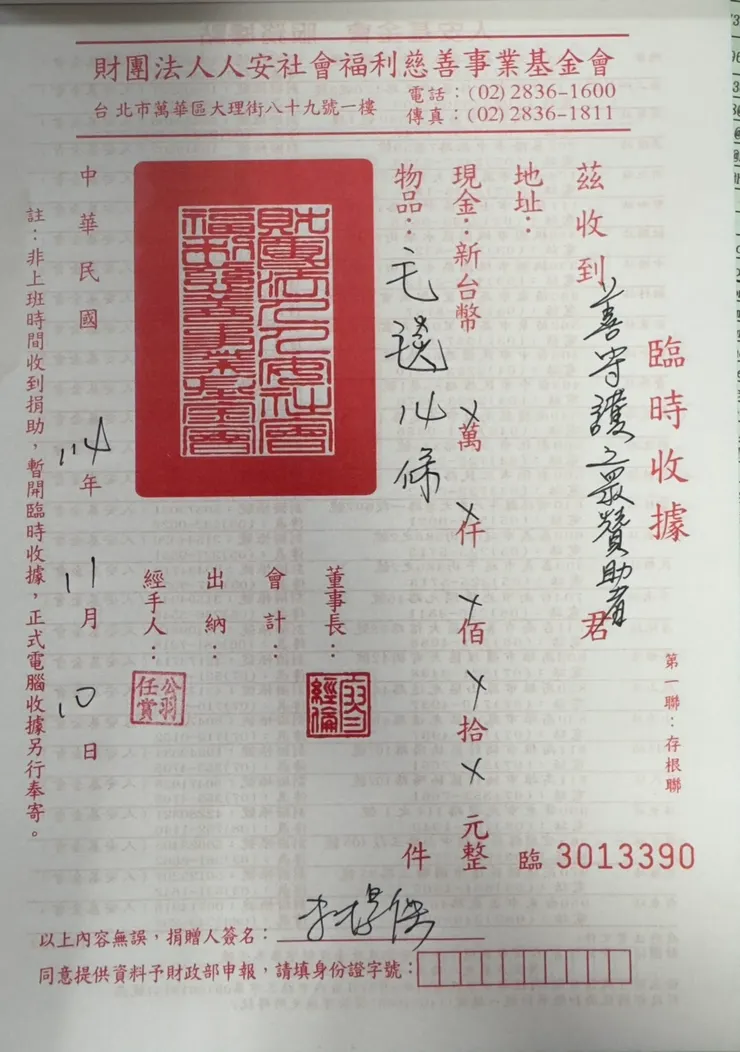 財團法人人安社會福利慈善事業基金會
台北市萬華區大理街八十九號一樓
電話：(02)2836-1600
傳真：(02)2836-1811
臨時收據
第一聯：存根聯
臨 3013390
茲收到 善守護之眾贊助者 君
地址：
現金：新台幣 X萬 X仟 X佰 X拾 X 元整
物品：毛毯14條 件
財團法人人安社會福利慈善事業基金會
董事長：
會計：
出納：
經手人：
公羽任賞
中華民國 114年 11月 10日
註：非上班時間收到捐助，暫開臨時收據，正式電腦收據另行奉寄。
以上內容無誤，捐贈人簽名：
同意提供資料予財政部申報，請填身份證字號：